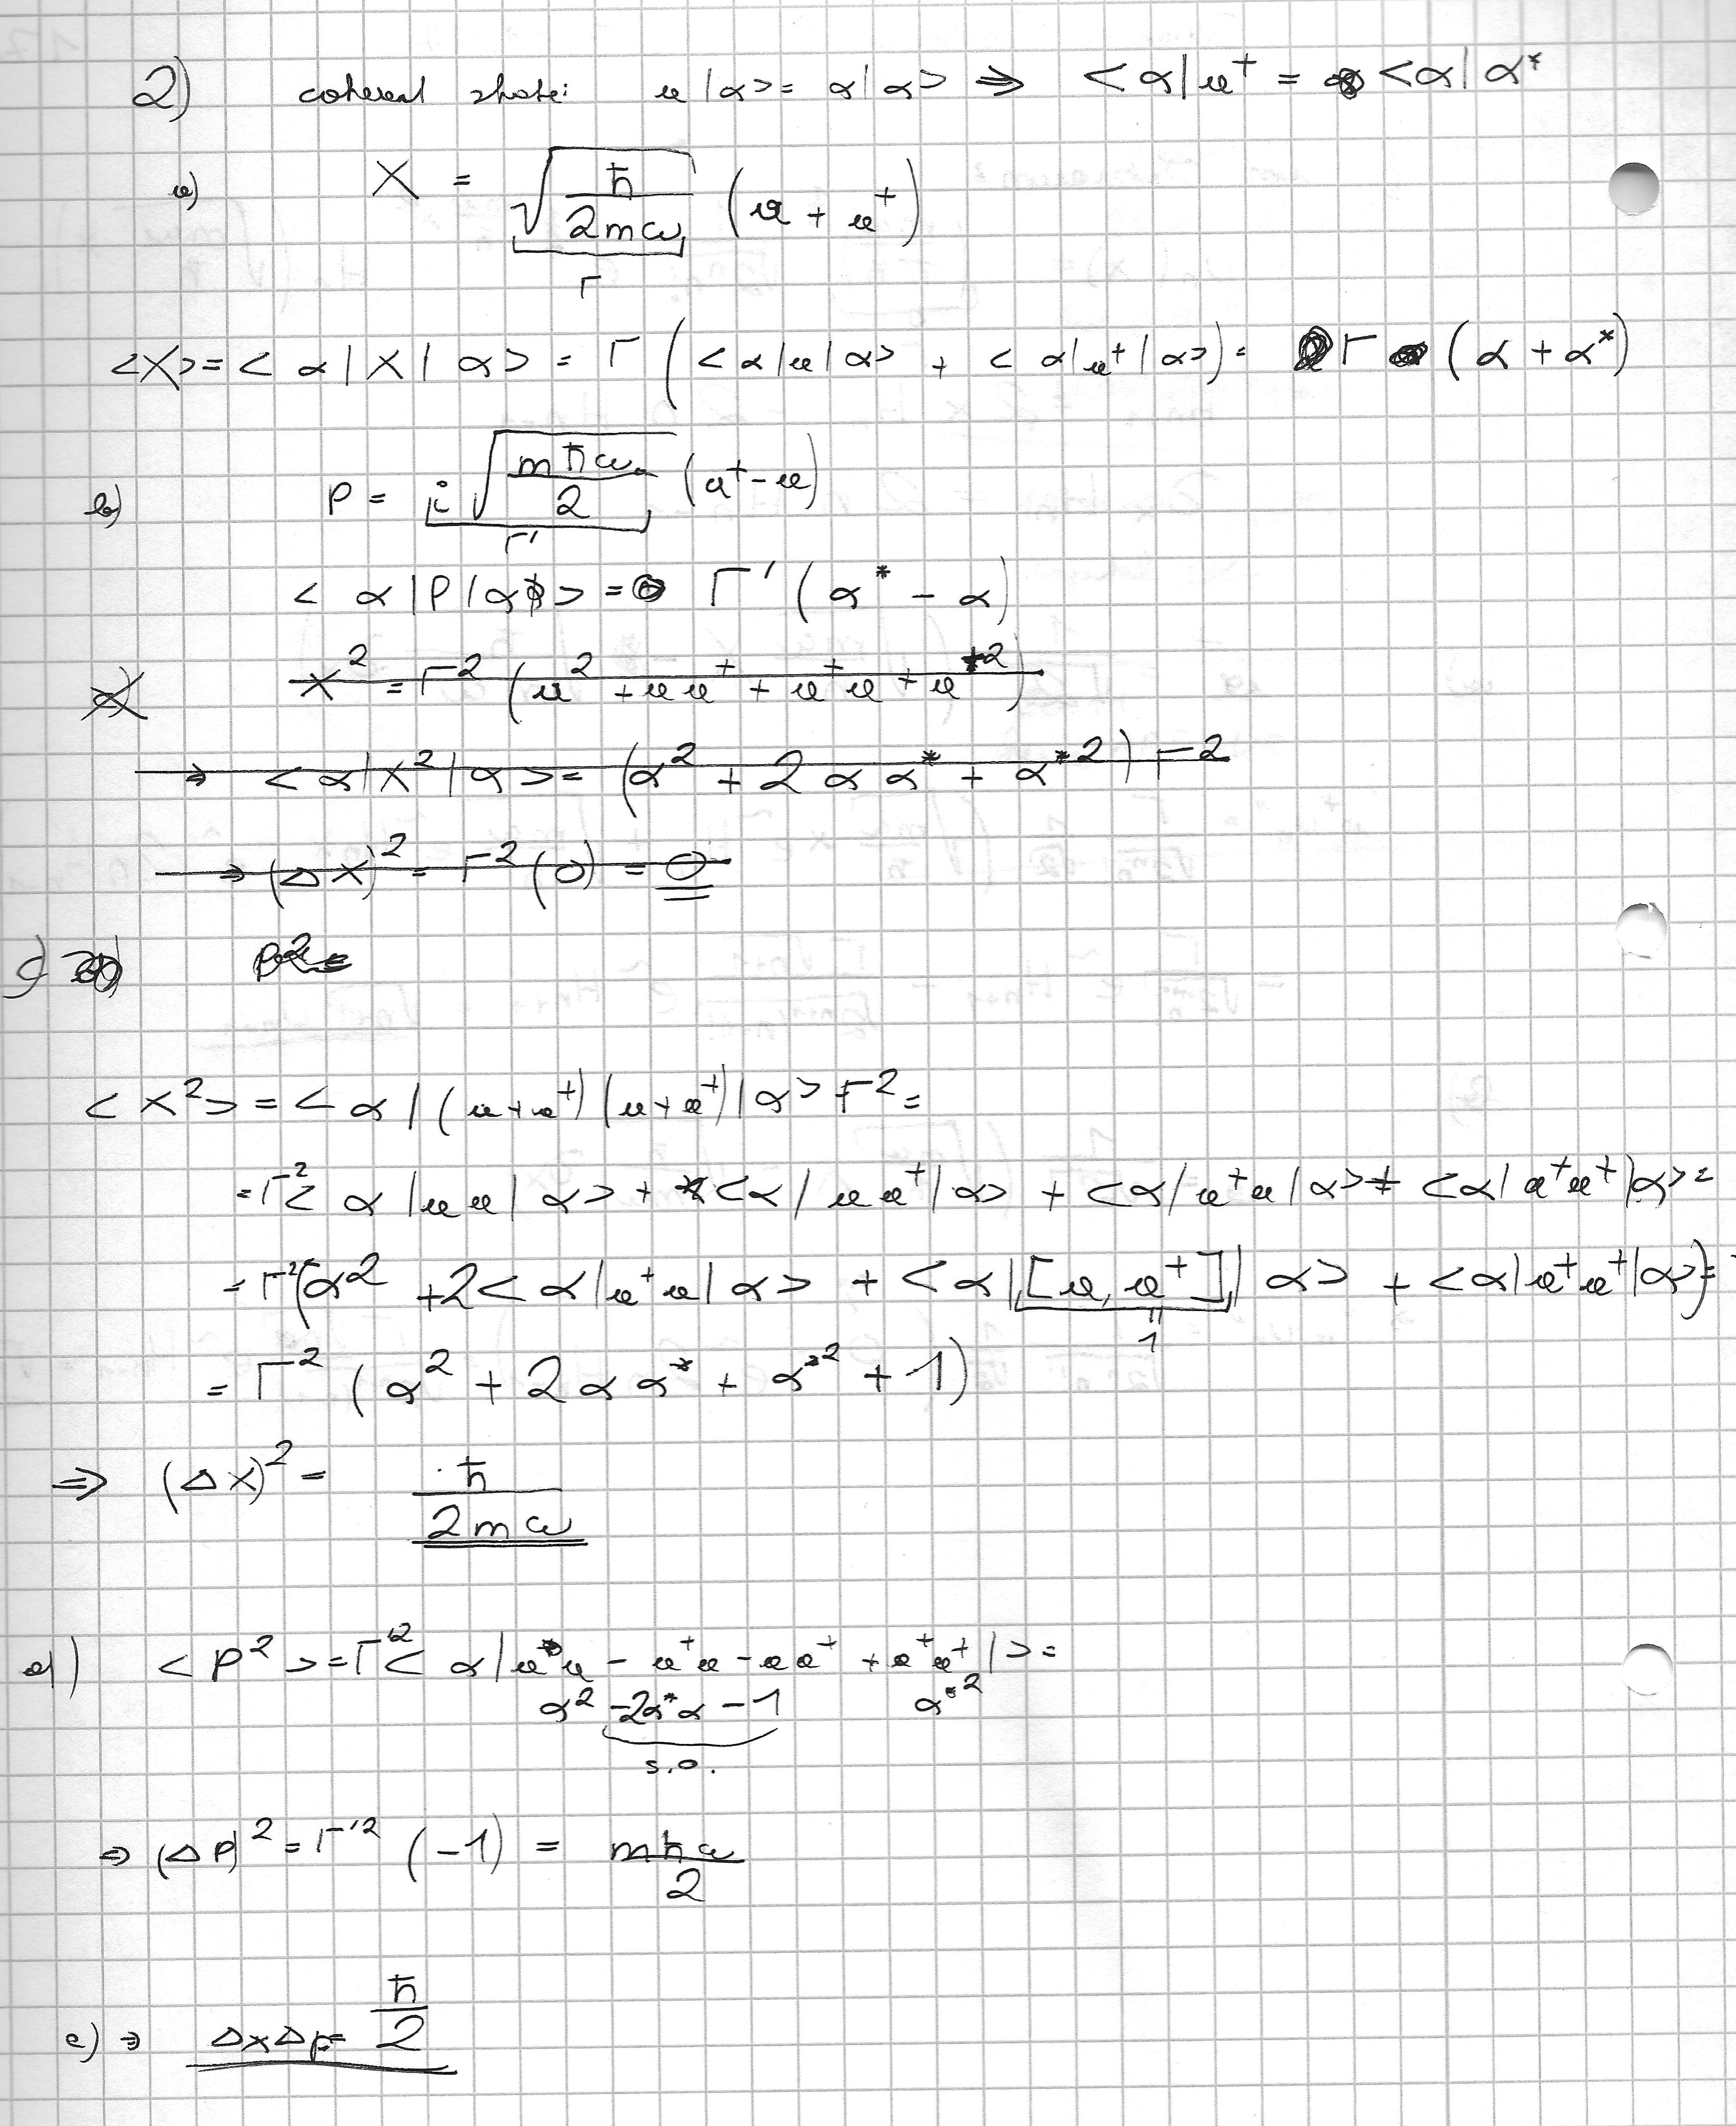 2) coherent state: a |α> = α|α> ⇒ <α| a⁺ = <α| α*
a) X = √(ħ/2mω) (a + a⁺)
Γ
<X> = <α|X|α> = Γ (<α|a|α> + <α|a⁺|α>) = Γ (α + α*)
b) P = i √(mħω/2) (a⁺ - a)
Γ'
<α|P|α> = Γ' (α* - α)
X² = Γ² (a² + a a⁺ + a⁺a + a⁺²)
→ <α|X²|α> = (α² + 2 α α* + α*²) Γ²
⇒ (ΔX)² = Γ² (0) = 0
c) P² =
<X²> = <α| (a+a⁺) (a+a⁺) |α> Γ² =
= Γ² <α|a a|α> + <α|a a⁺|α> + <α|a⁺a|α> + <α|a⁺a⁺|α> =
= Γ² (α² + 2<α|a⁺a|α> + <α|[a, a⁺]|α> + <α|a⁺a⁺|α>) =
1
= Γ² (α² + 2 α α* + α*² + 1)
⇒ (ΔX)² = ħ/2mω
d) <P²> = Γ'² <α|a a - a⁺a - a a⁺ + a⁺a⁺|> =
α² -2α*α - 1 α*²
s.o.
⇒ (ΔP)² = Γ'² (-1) = mħω/2
e) ⇒ ΔxΔp = ħ/2